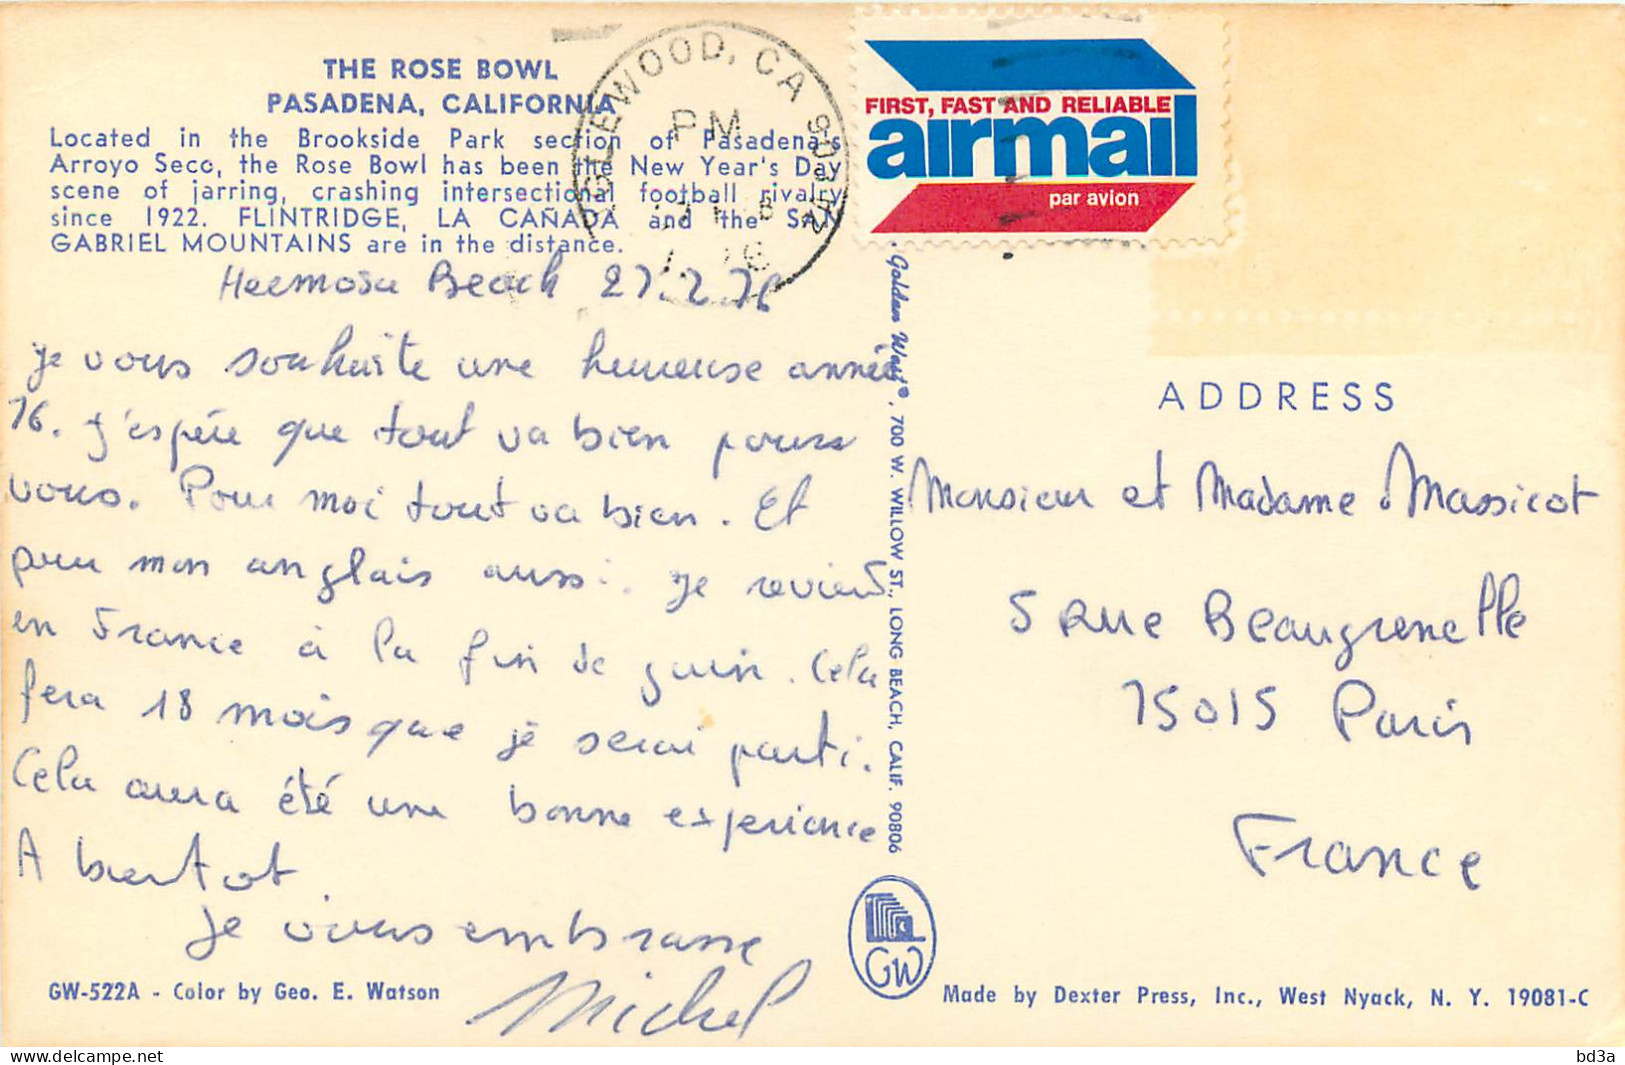 THE ROSE BOWL
PASADENA, CALIFORNIA
Located in the Brookside Park section of Pasadena's
Arroyo Seco, the Rose Bowl has been the New Year's Day
scene of jarring, crashing intersectional football rivalry
since 1922. FLINTRIDGE, LA CAÑADA and the SAN
GABRIEL MOUNTAINS are in the distance.
GLEWOOD, CA
PM
FIRST, FAST AND RELIABLE
airmail
par avion
Hermosa Beach 27.2.76
Je vous souhaite une heureuse année
76. J'espére que tout va bien pour
vous. Pour moi tout va bien. Et
pour mon anglais aussi. Je reviens
en France à la fin de juin. Cela
fera 18 mois que je serai parti.
Cela aura été une bonne experience
A bientot.
Je vous embrasse
Michel
Golden West ®, 700 W. WILLOW ST., LONG BEACH, CALIF. 90806
ADDRESS
Monsieur et Madame Massicot
5 Rue Beaugrenelle
75015 Paris
France
GW
GW-522A - Color by Geo. E. Watson
Made by Dexter Press, Inc., West Nyack, N. Y. 19081-C
delcampe.net
bd3a